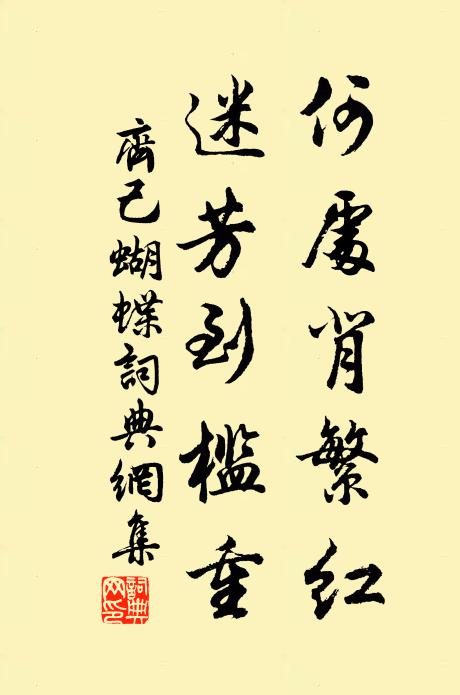 何處背繁紅
迷芳到檻重
齊己蝴蝶詞典網集
詞典网印